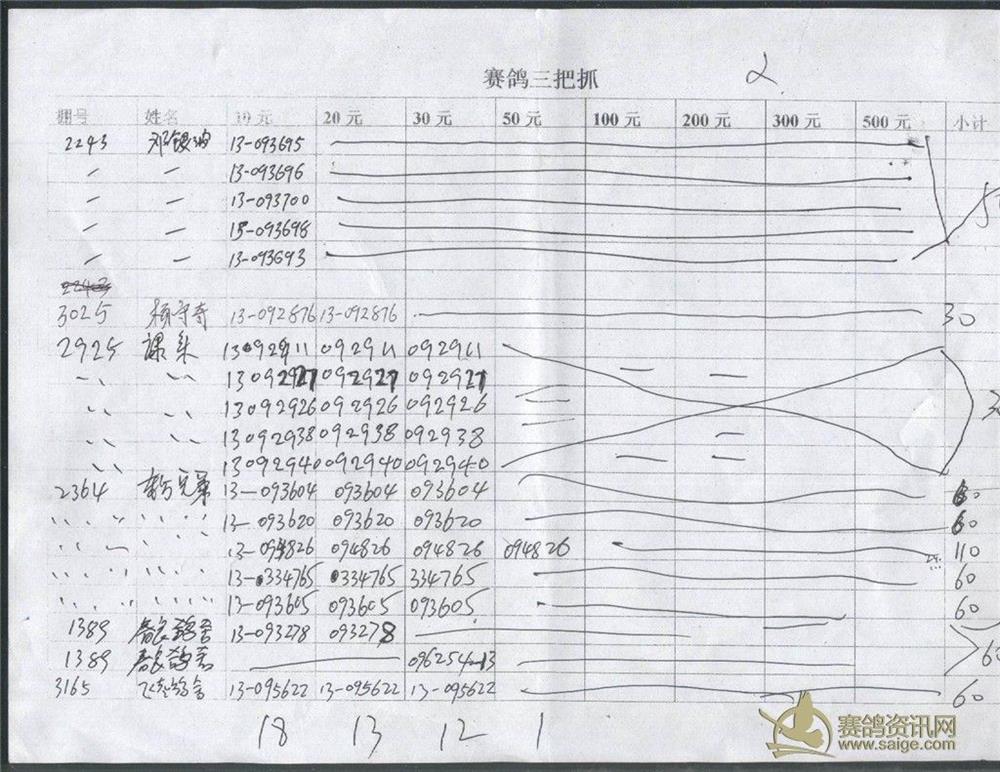 赛鸽三把抓 2
棚号 姓名 10元 20元 30元 50元 100元 200元 300元 500元 小计
2243 邓银 13-093695
13-093696
13-093700
13-093698
13-093693
3025 杨守奇 13-092876 13-092876 30
2925 13092911 092911 092911
13092927 092927 092927
13092926 092926 092926
13092938 092938 092938
13092940 092940 092940
2364 兄弟 13-093604 093604 093604 60
13-093620 093620 093620 60
13-094826 094826 094826 094826 110
13-334765 334765 334765 60
13-093605 093605 093605 60
1389 鸽舍 13-093278 093278
1389 鸽舍 096254-13 60
3165 鸽舍 13-095622 13-095622 13-095622 60
18 13 12 1
赛鸽资讯网
www.saige.com